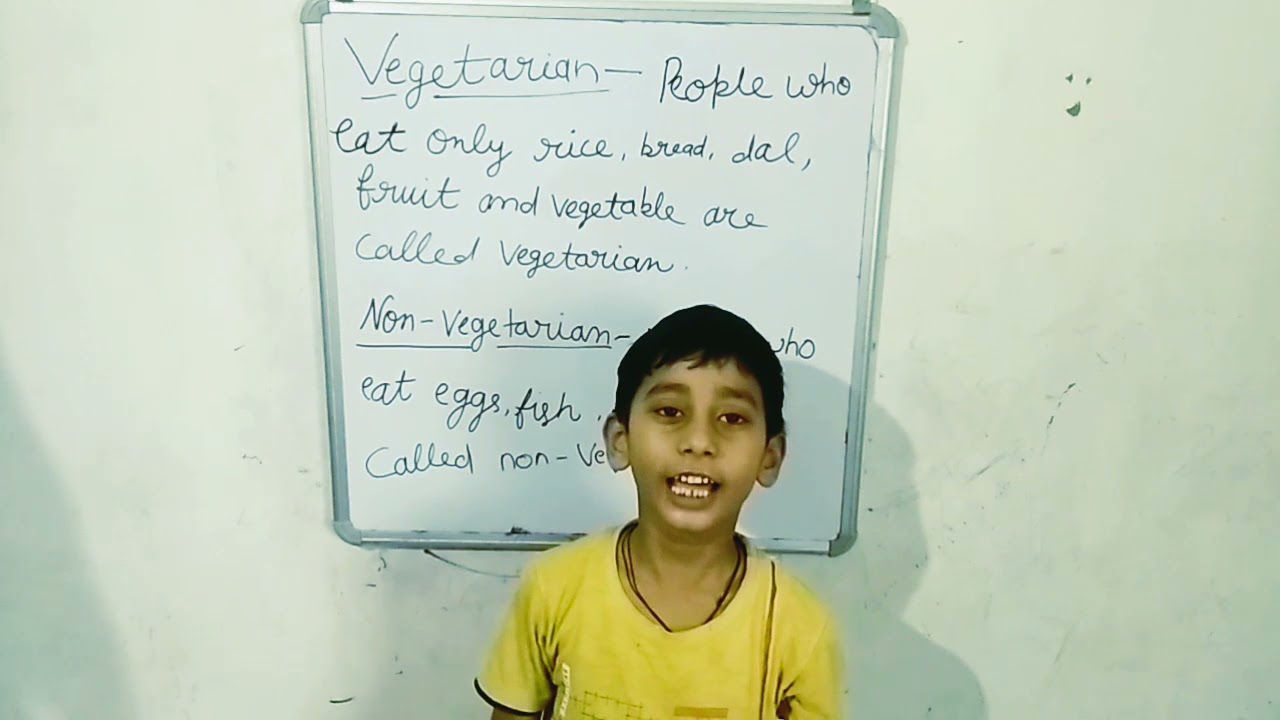 Vegetarian — People who
eat only rice, bread, dal,
fruit and vegetable are
Called vegetarian.
Non-Vegetarian - who
eat eggs, fish,
Called non-Ve